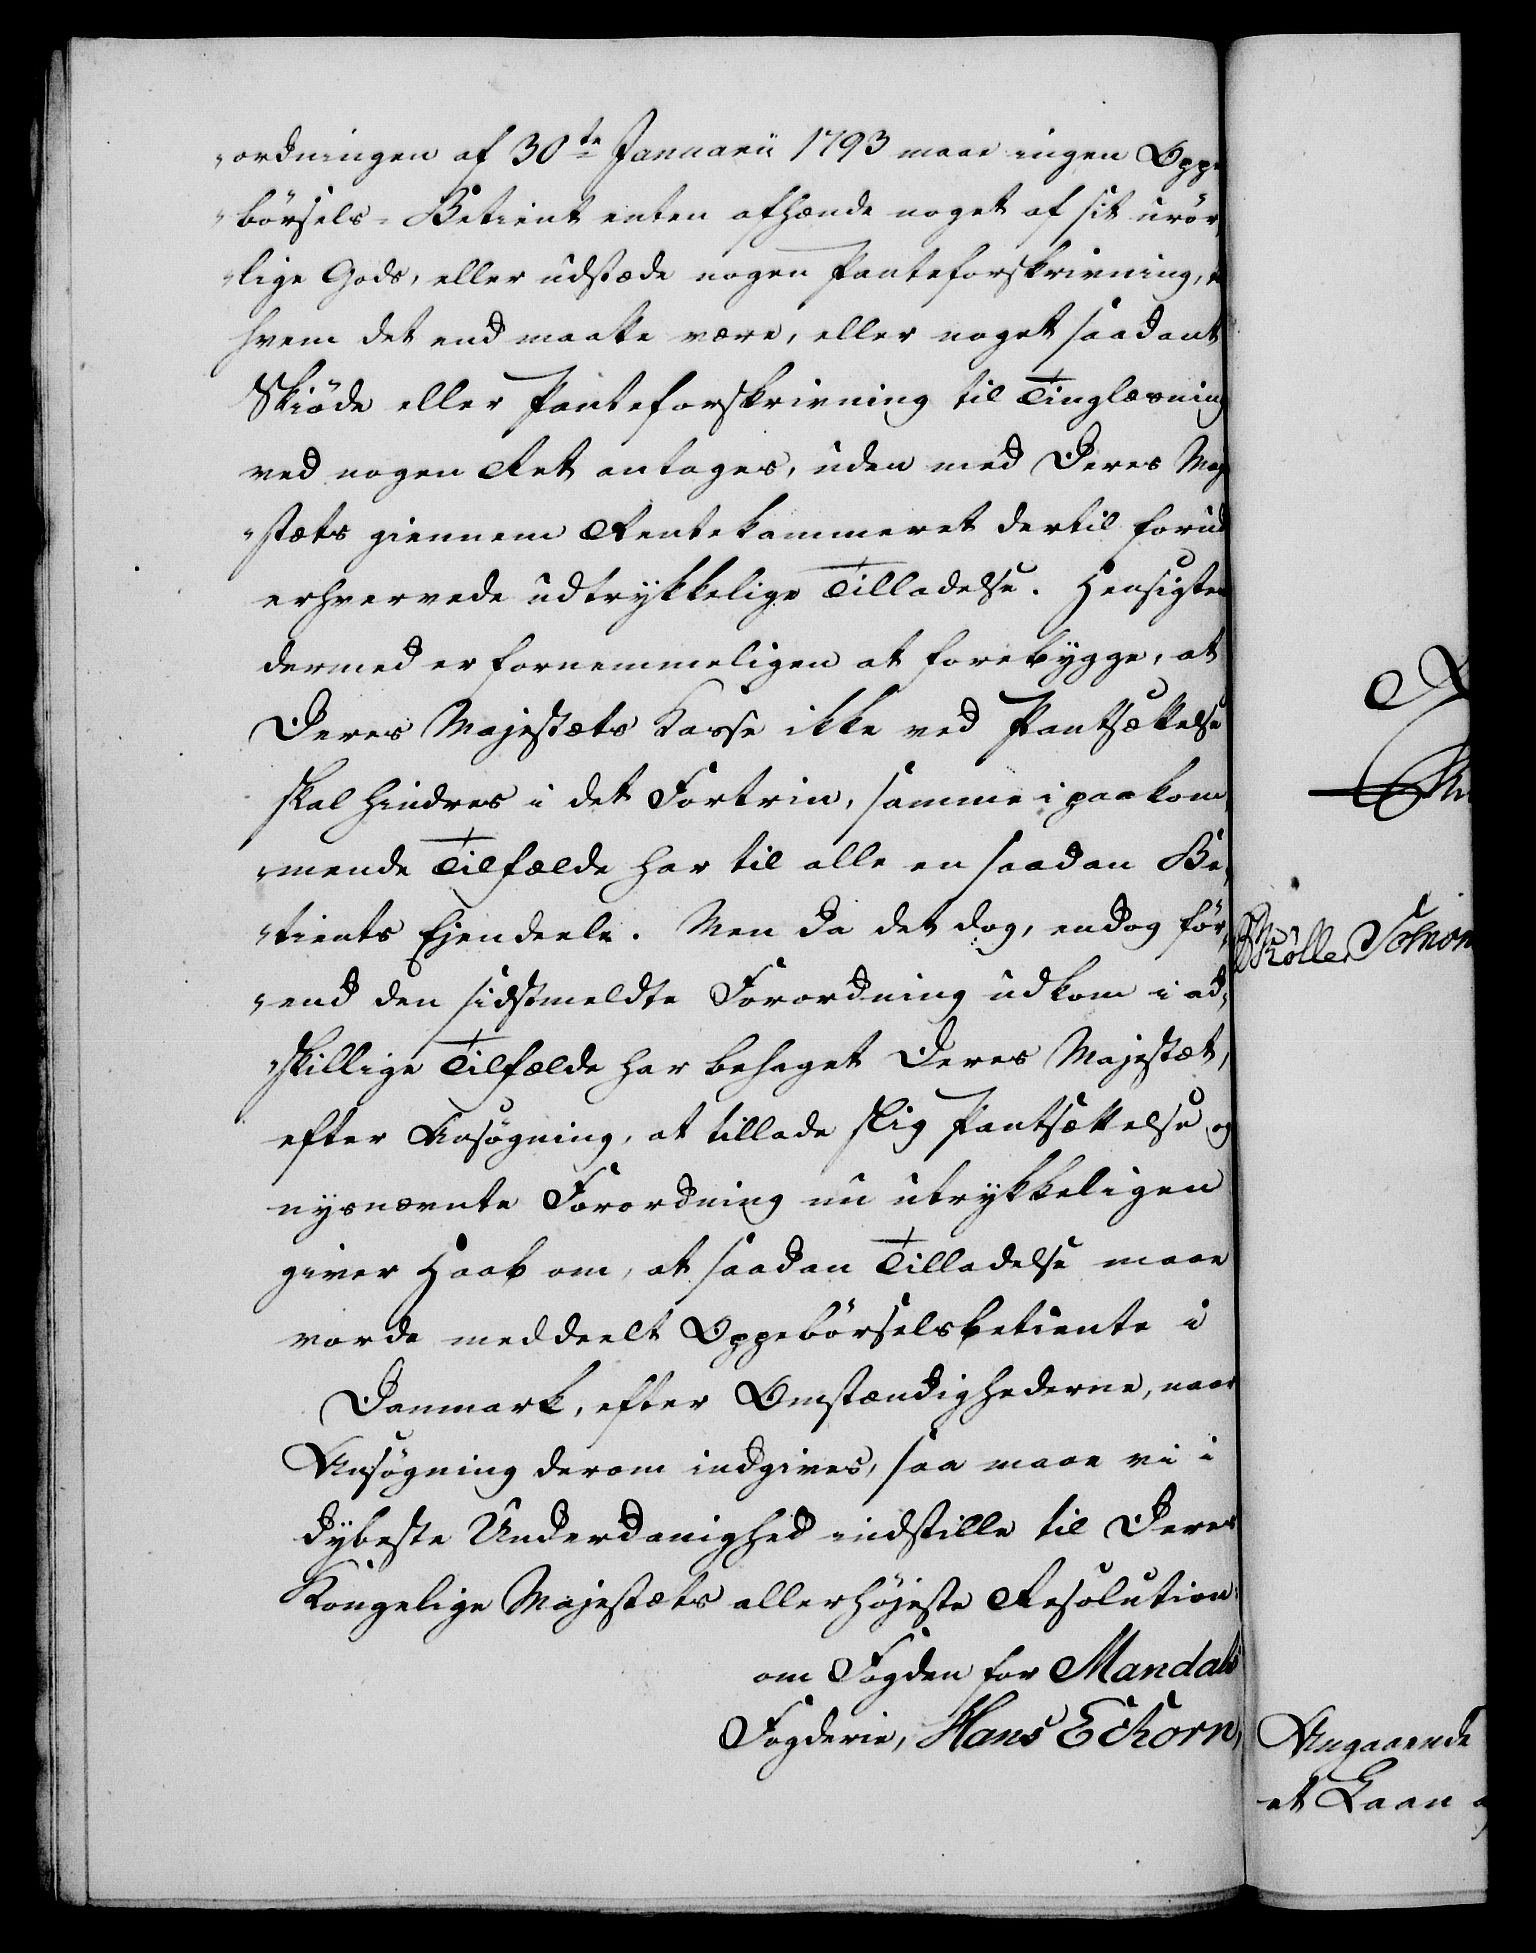 "ordningen af 30te Januarii 1793 maae ingen Oppe
"börsels-Betient enten afhænde noget af sit urör,
"lige Gods, eller udstæde nogen Panteforskrivning, 
hvem det end maatte være, eller noget saadant
Skiöde eller Panteforskrivning til Tinglæsning
ved nogen Ret antages, uden med Deres Maj
"stæts giennem Rentekammeret dertil forud
erhvervede udtrykkelige Tilladelse. Hensigten
dermed er fornemmeligen at forebygge, at
Deres Majestæts Kasse ikke ved Pantsættelse
skal hindres i det Fortrin, samme i paakom,
"mende Tilfælde har til alle en saadan Be,
"tients Ejendeele. Men da det dog, endog för,
"end den sidstmeldte Forordning udkom i ad,
"skillige Tilfælde har behaget Deres Majestæt,
efter Ansögning, at tillade slig Pantsættelse, og
nysnævnte Forordning nu utrykkeligen
giver Haab om, at saadan Tilladelse maae
vorde meddeelt Oppebörselsbetiente i
Danmark, efter Omstændighederne, naar
Ansögning derom indgives, saa maae vi i
dÿbeste Underdanighed indstille til Deres
Kongelige Majestæts allerhöjeste Resolution:
om Fogden for Mandals
Fogderie, Hans Eckorn,
Angaaende
et Laan